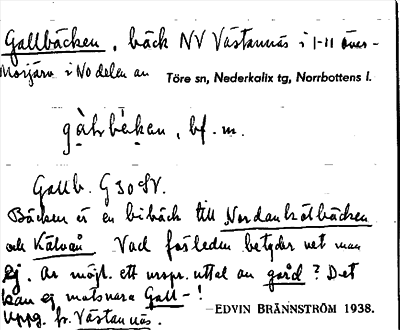 Gallbäcken, bäck NV Västannäs i 1-11 över-
Morjärv i NO delen av Töre sn, Nederkalix tg, Norrbottens l.
bf. m.
Gallb. G 30 SV.
Bäcken är en bibäck till Nordankätbäcken
och Kälvån. Vad förleden betyder vet man
ej. Är möjl. ett urspr. uttal av gård? Det
kan ej motsvara Gall-!
Uppg. fr. Västannäs. EDVIN BRÄNNSTRÖM 1938.